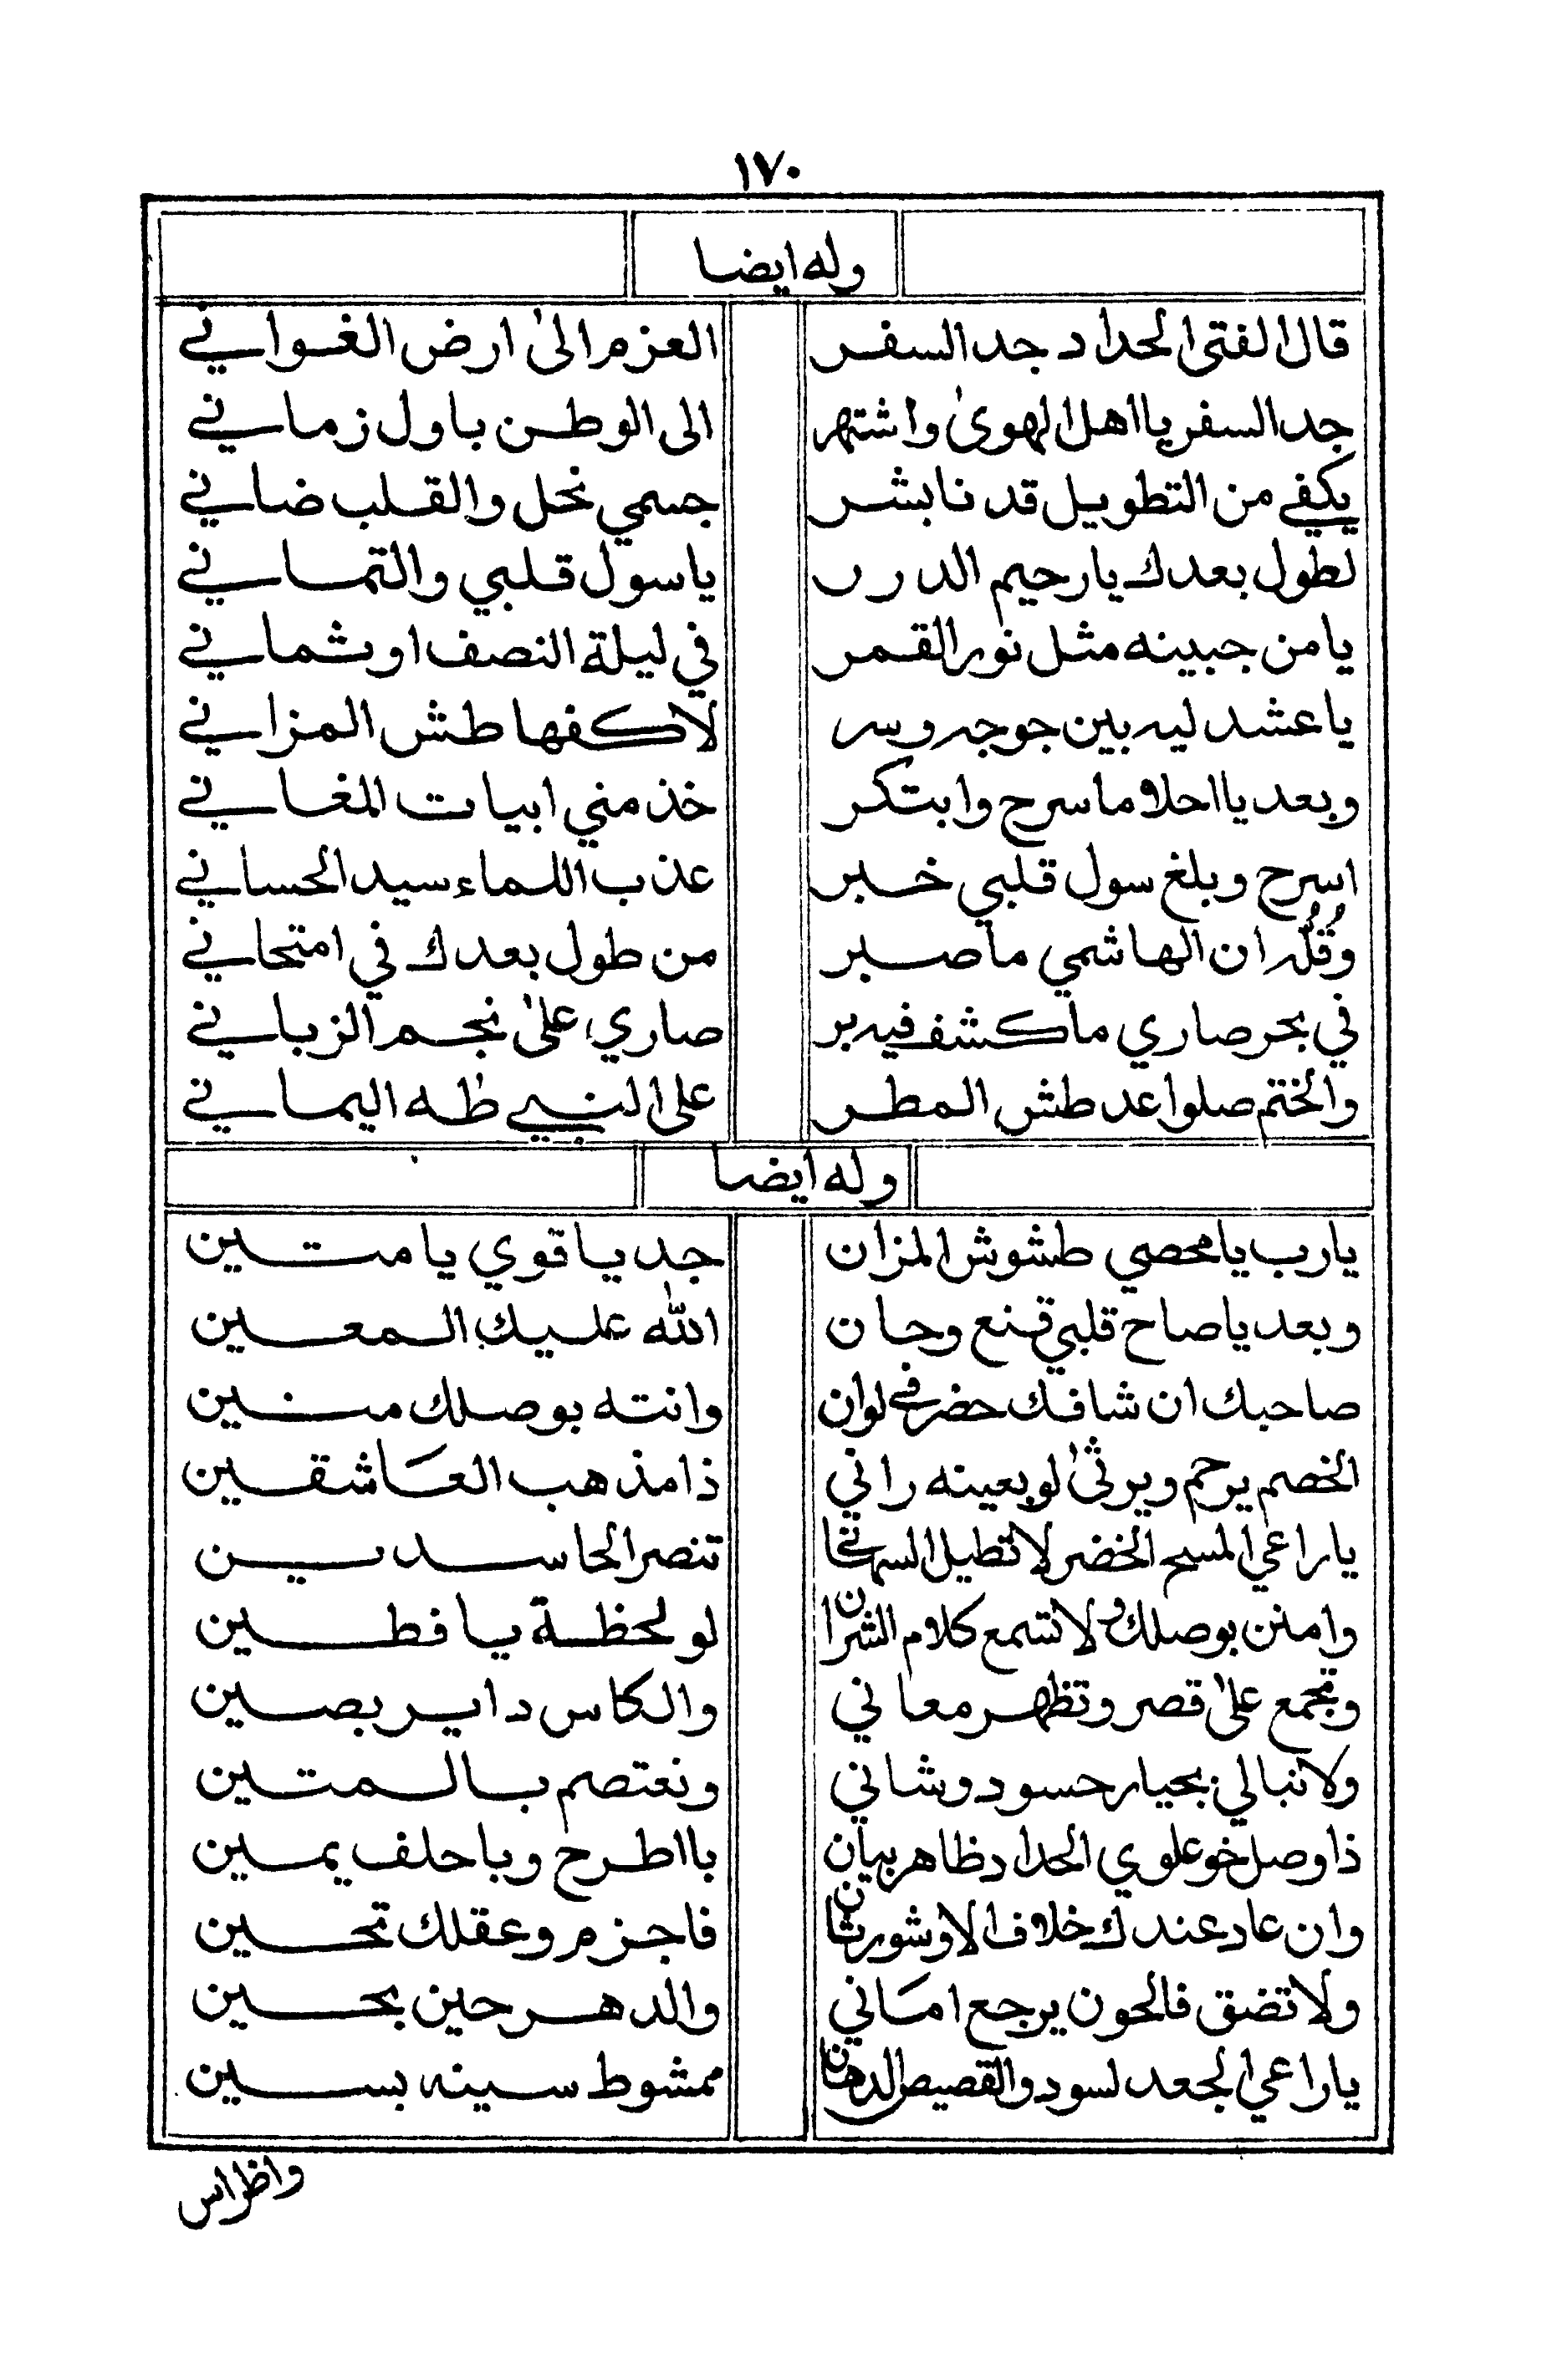 ١٧٠
وله ايضا
قال الفتى الحداد جد السفر العزم الى ارض الغواني
جد السفر يا اهل الهوى واشتهر الى الوطن باول زماني
يكفي من التطويل قد نا بشر جسمي نحل والقلب ضاني
لطول بعدك يا رحيم الدرر يا سول قلبي والتماني
يا من جبينه مثل نور القمر في ليلة النصف او ثماني
يا عشد ليه بين جوجه وسر لا كفها طش المزاني
وبعد يا احلا ما سرح وابتكر خذ مني ابيات المغاني
اسرح وبلغ سول قلبي خبر عذب اللماء سيد الحساني
وقُلُّه ان الهاشمي ما صبر من طول بعدك في امتحاني
في بحر صاري ما كشف فيه بر صاري على نجم الزباني
والختم صلوا عد طش المطر على النبي طه اليماني
وله ايضا
يا رب يا محصي طشوش المزان جد يا قوي يا متين
وبعد يا صاح قلبي قنع وحان الله عليك المعين
صاحبك ان شافك حضر في لوان وانته بوصلك منين
الخصم يرحم ويرثى لو بعينه راني ذا مذهب العاشقين
يا راعي المسح الخضر لا تطيل تنصر الحاسدين
وامنن بوصلك ولا تسمع كلام الشران لو لحظة يا فطين
ونجمع على قصر وتظهر معاني والكاس داير بصين
ولا نبالي بحيار حسود وشاني ونعتصم بالمتين
ذا وصل خو علوي الحداد ظاهر بيان با اطرح وبا حلف يمين
وان عاد عندك خلاف الا وشور ثان فاجزم وعقلك تحين
ولا تضق فالحون يرجع اماني والدهر حين بحين
يا راعي الجعد لسود والقصيص الدهان ممشوط سينه بسين